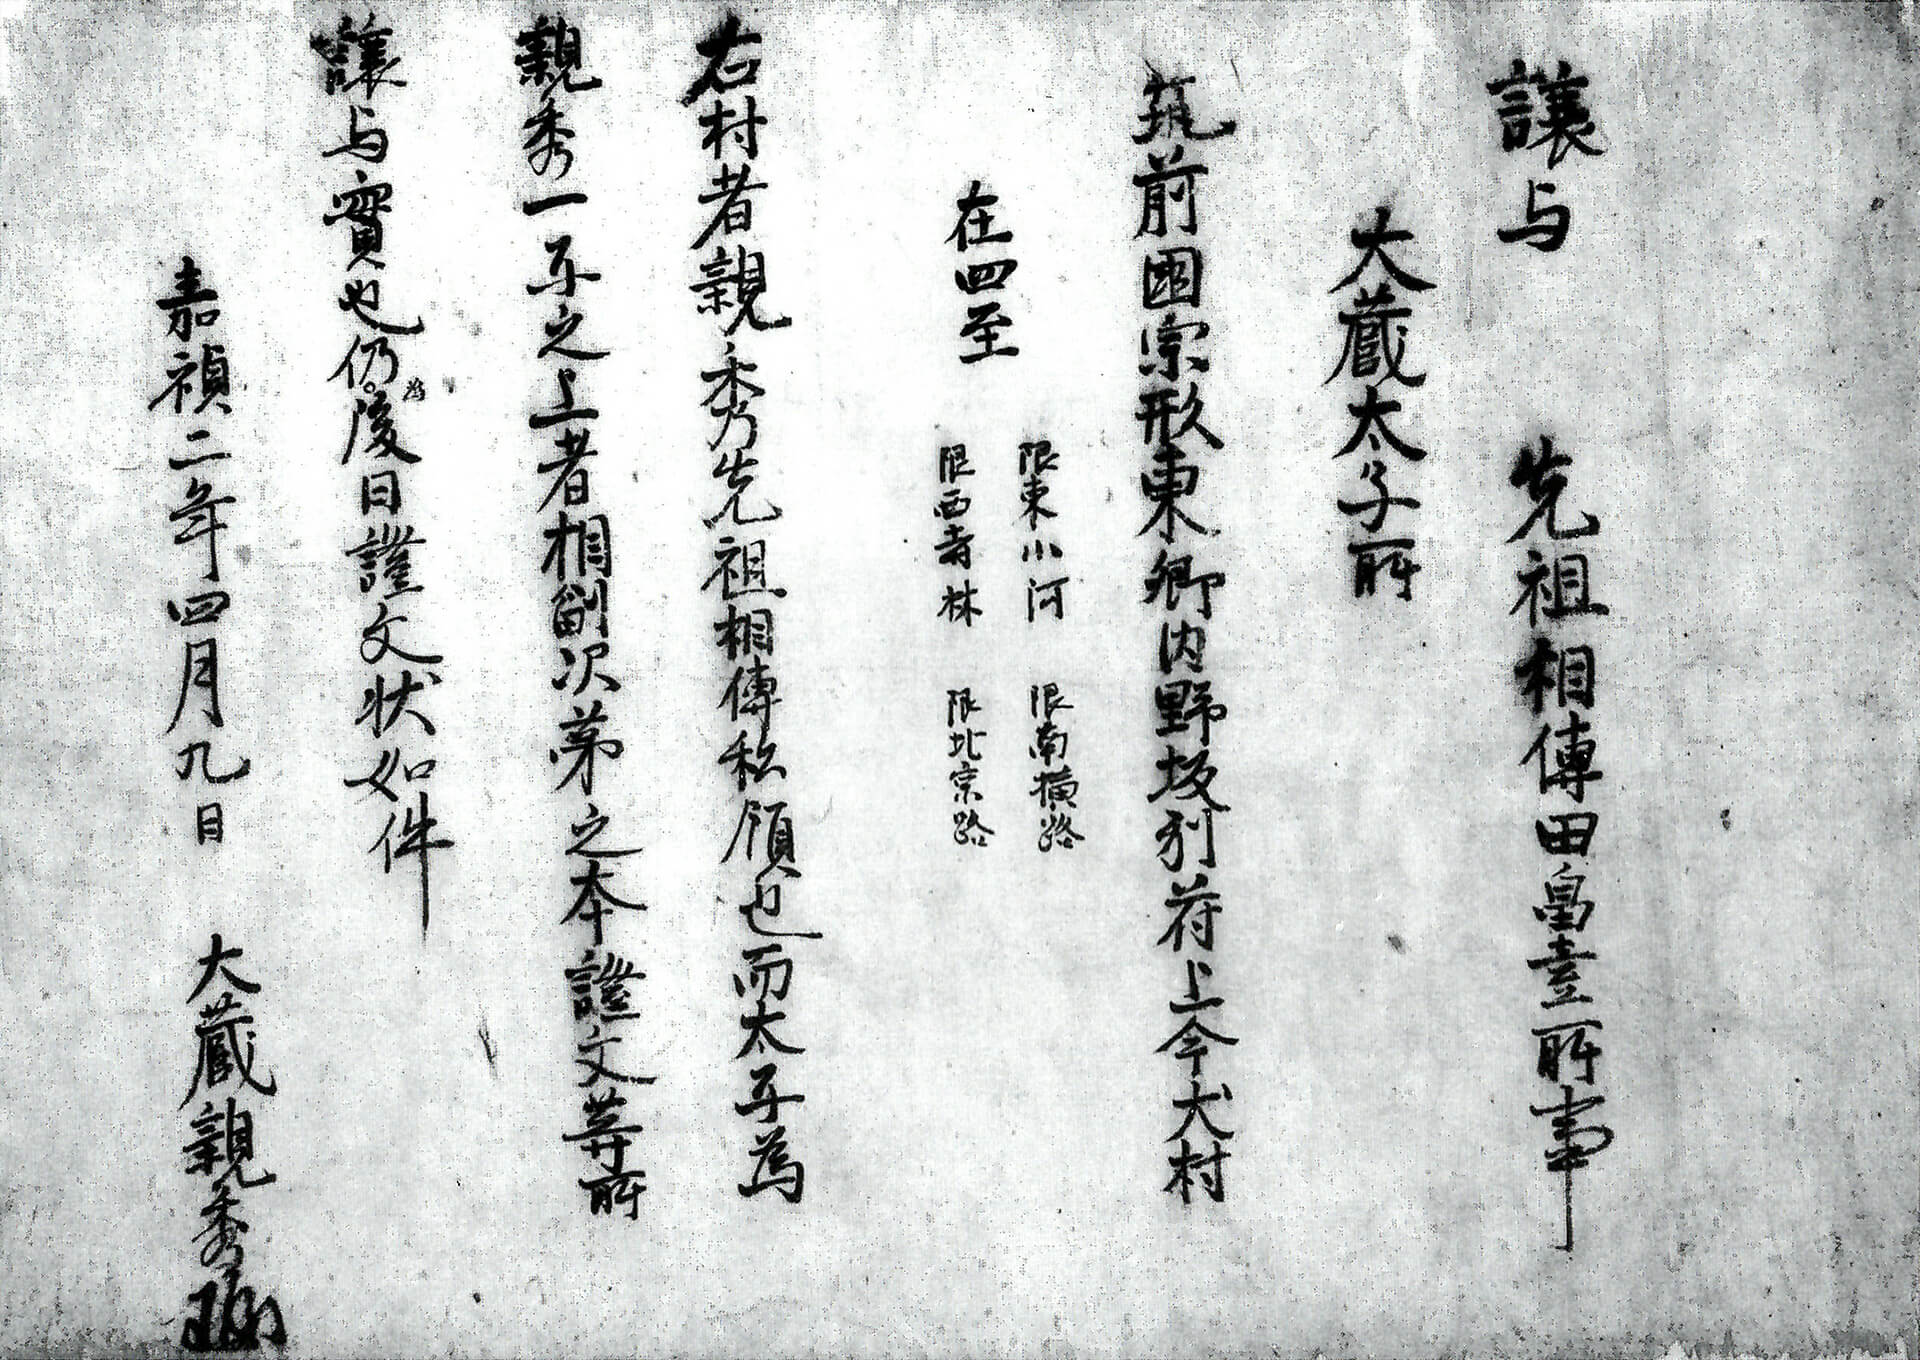 讓与　先祖相傳田畠壹所事
大蔵太子所
筑前國宗形東郷内野坂別符上今犬村
在四至
限東小河　限南横路
限西寺林　限北宗路
右村者親秀先祖相傳私領也而太子為
親秀一子之上者相副次第之本證文等所
讓与實也仍為後日證文状如件
嘉禎二年四月九日　大蔵親秀